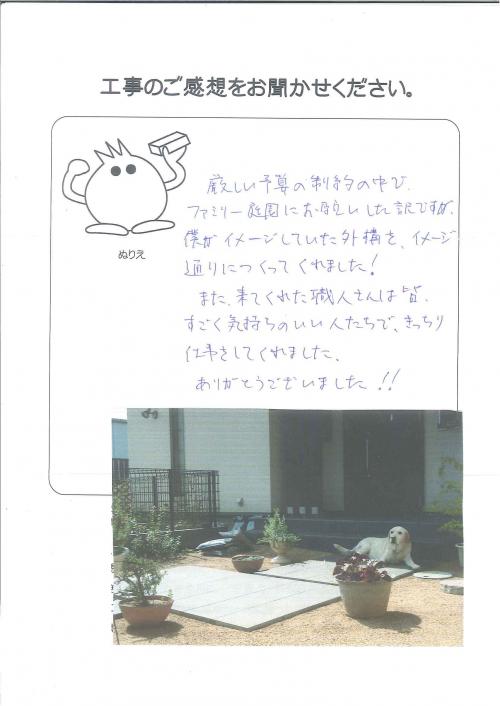 工事のご感想をお聞かせください。
ぬりえ
厳しい予算の制約の中で、
ファミリー庭園にお願いした訳ですが、
僕がイメージしていた外構を、イメージ
通りにつくってくれました!
また、来てくれた職人さんは皆、
すごく気持ちのいい人たちで、きっちり
仕事をしてくれました、
ありがとうございました!!